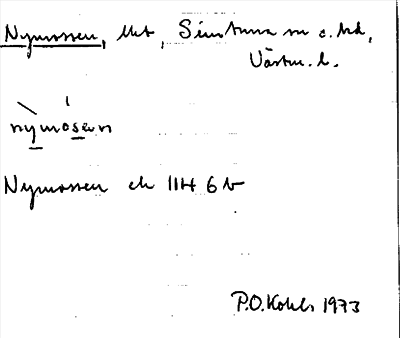 Nymossen, Ukt, Simtuna sn o. hd,
Västm. l.
nymosen
Nymossen ek 11H 6 b
P.O. Kohls 1973